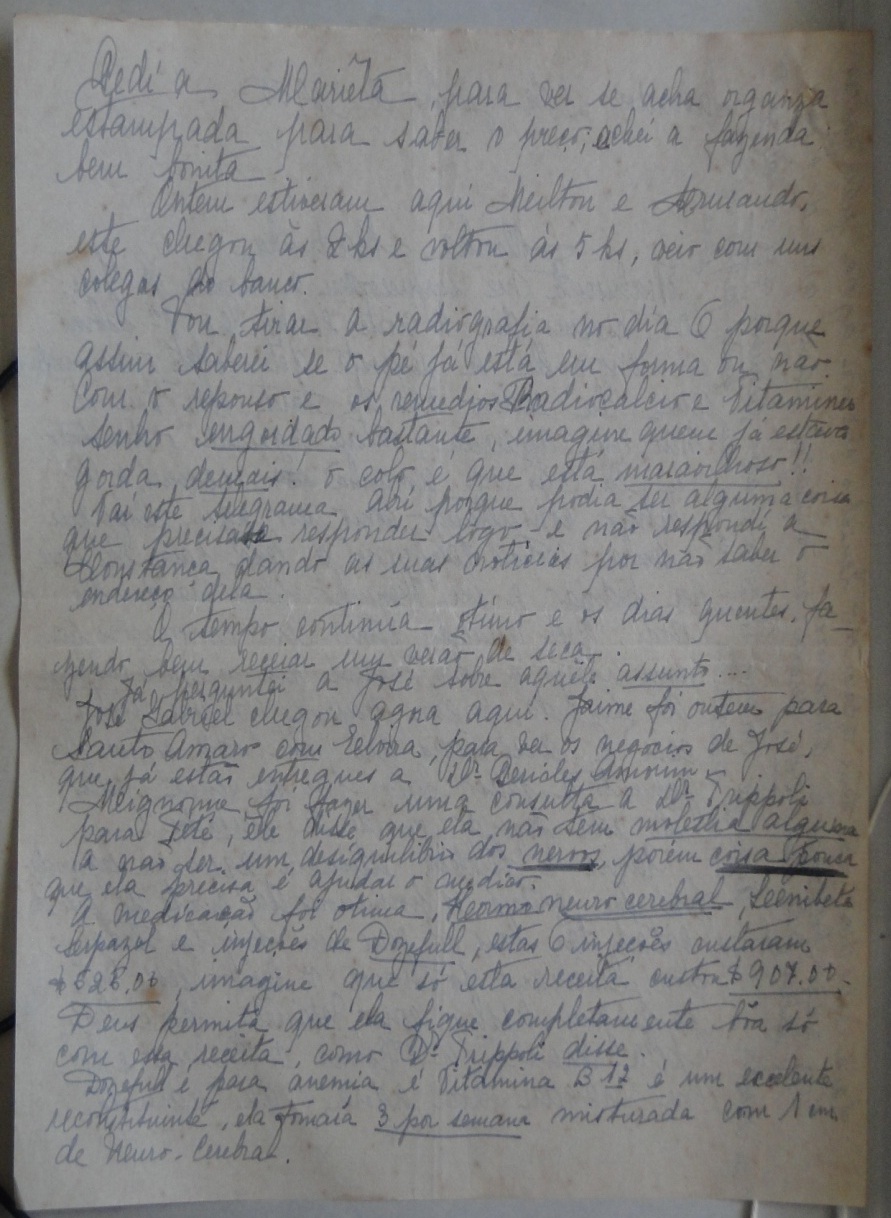 Pedi a Marieta, para ver se acha organza
estampada para saber o preço, achei a fazenda
bem bonita
Ontem estiveram aqui Milton e Armando,
este chegou às 2 hs e voltou ás 5 hs, veio com uns
colegas do banco.
Vou tirar a radiografia no dia 6 porque
assim saberei se o pé já está em forma ou não.
Com o repouso e os remedios Radiocalcio e Vitamines
tenho engordado bastante, imagine quem já estava
gorda demais! o colo é que está maravilhoso!!
Vai este telegrama abri porque podia ser alguma coisa
que precisasse responder logo, e não respondi a
Constança dando as suas noticias por não saber o
endereço dela.
O tempo continúa ótimo e os dias quentes, fa-
zendo bem receiar um verão de seca.
Já perguntei a José sobre aquele assunto....
José Gabriel chegou agora aqui. Jaime foi ontem para
Santo Amaro com Elvira, para ver os negocios de José,
que já estão entregues a Dr. Pericles Amorim
foi fazer uma consulta a Dr. Trippoli
para Teté, ele disse que ela não tem molestia alguma
a não ser um desiquilibrio dos nervos, porém coisa pouca
que ela precisa é ajudar o medico.
A medicação foi otima, neuro cerebral,
serpazol e injeções de Dozefull, estas 6 injeções custaram
imagine que só esta receita custou $907.00.
Deus permita que ela fique completamente bôa só
com essa receita, como Dr. Trippoli disse.
Dozefull é para anemia é Vitamina B 12 é um excelente
reconstituinte, ela tomará 3 por semana misturada com 1 cm
de Neuro-Cerebral.